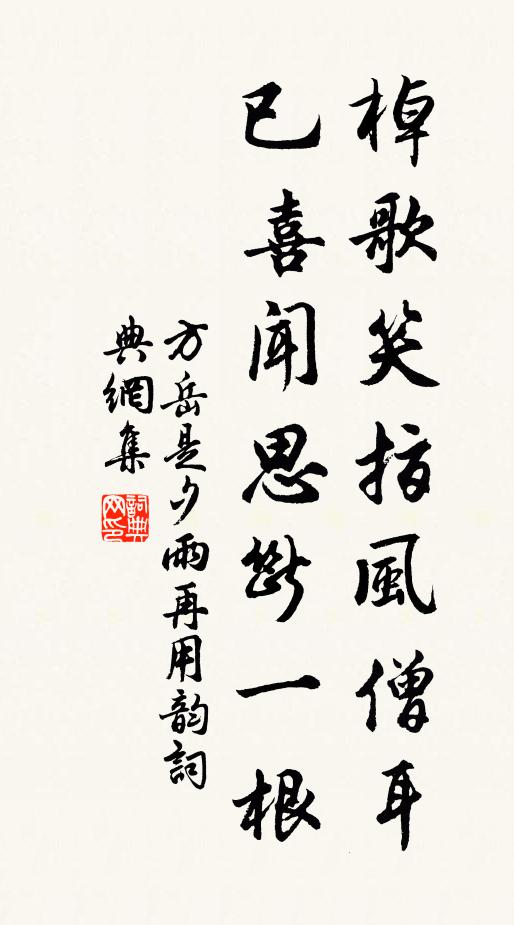 棹歌笑指風僧耳
已喜聞思斷一根
方岳是夕雨再用韵詞
典網集
詞典網印